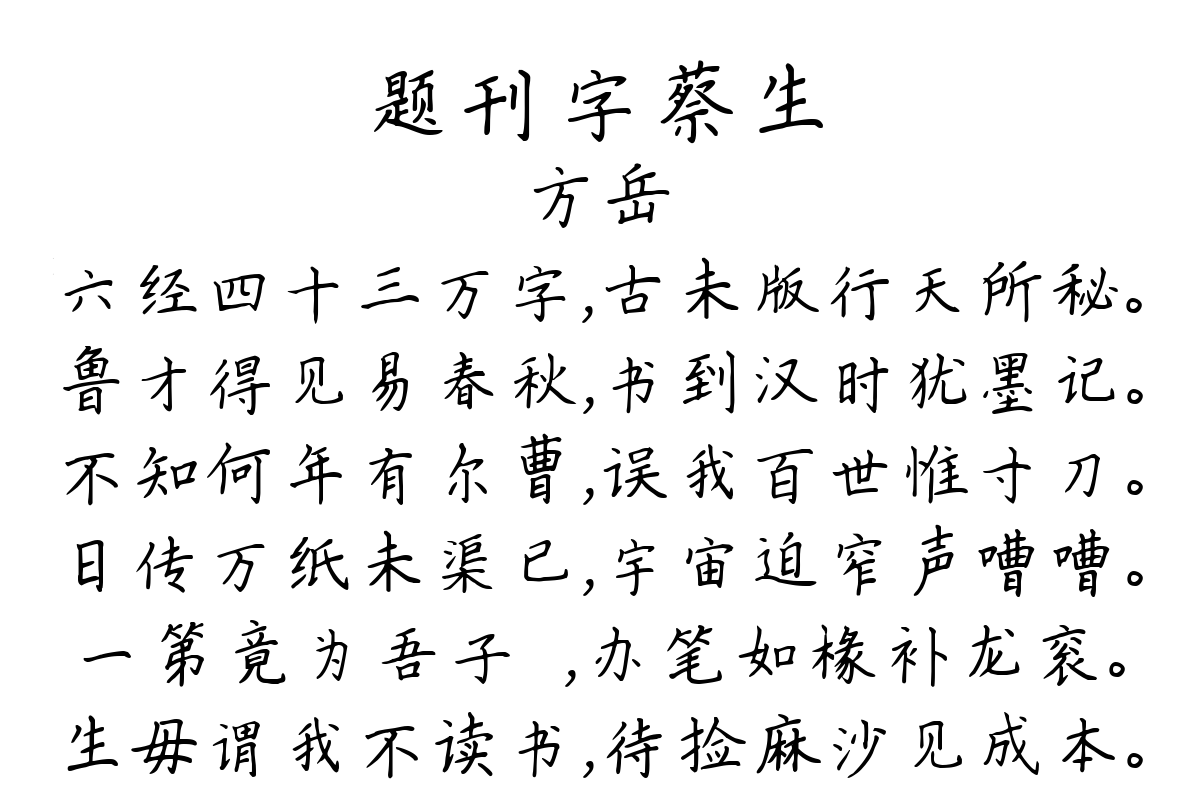 题刊字蔡生
方岳
六经四十三万字,古未版行天所秘。
鲁才得见易春秋,书到汉时犹墨记。
不知何年有尔曹,误我百世惟寸刀。
日传万纸未渠已,宇宙迫窄声嘈嘈。
一第竟为吾子 ,办笔如椽补龙衮。
生毋谓我不读书,待捡麻沙见成本。